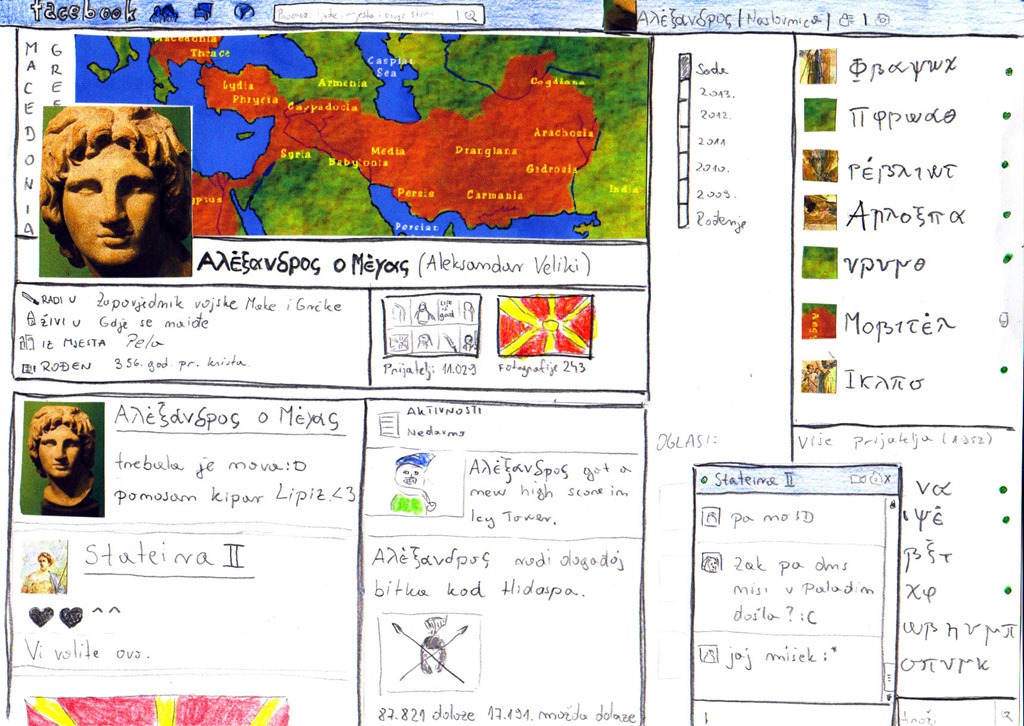 facebook
Αλέξανδρος | Naslovnica |
MACEDONIA
GREE
Macedonia
Thrace
Lydia
Phrycia
Cappadocia
Armenia
Caspian
Sea
Sogdiana
Syria
Babylonia
Media
Drangiana
Arachosia
Gedrosia
India
Persis
Carmania
Persian
Αλέξανδρος ο Μέγας (Aleksandar Veliki)
RADI U Zapovjednik vojske Make i Grčke
ŽIVI U Gdje se nađe
IZ MJESTA Pela
ROĐEN 356. god. pr. krista.
Prijatelji 11.029
Fotografije 243
Sada
2013.
2012.
2011
2010.
2009.
Rođenje
Φβαψωχ
Πφρωαθ
ρέβλιωτ
Αρλοξπα
υρυμθ
Μοβιτέλ
Ικλπσ
Više prijatelja (1352)
OGLASI:
Αλέξανδρος ο Μέγας
trebala je nova:D
pomosam kipar Lipiz.<3
Stateira II
♥♥^^
Vi volite ovo.
AKTIVNOSTI
Nedavno
Αλέξανδρος got a
new high score in
Icy Tower.
Αλέξανδρος nudi događaj
bitka kod Hidaspa.
87.821 dolaze 17.191. možda dolaze
Stateira II
pa no :D
Zak pa dns
nisi v Paladin
došla? :C
joj mišek :*
να
ιψέ
βξτ
χφ
ωβηνμπ
σπυμκ